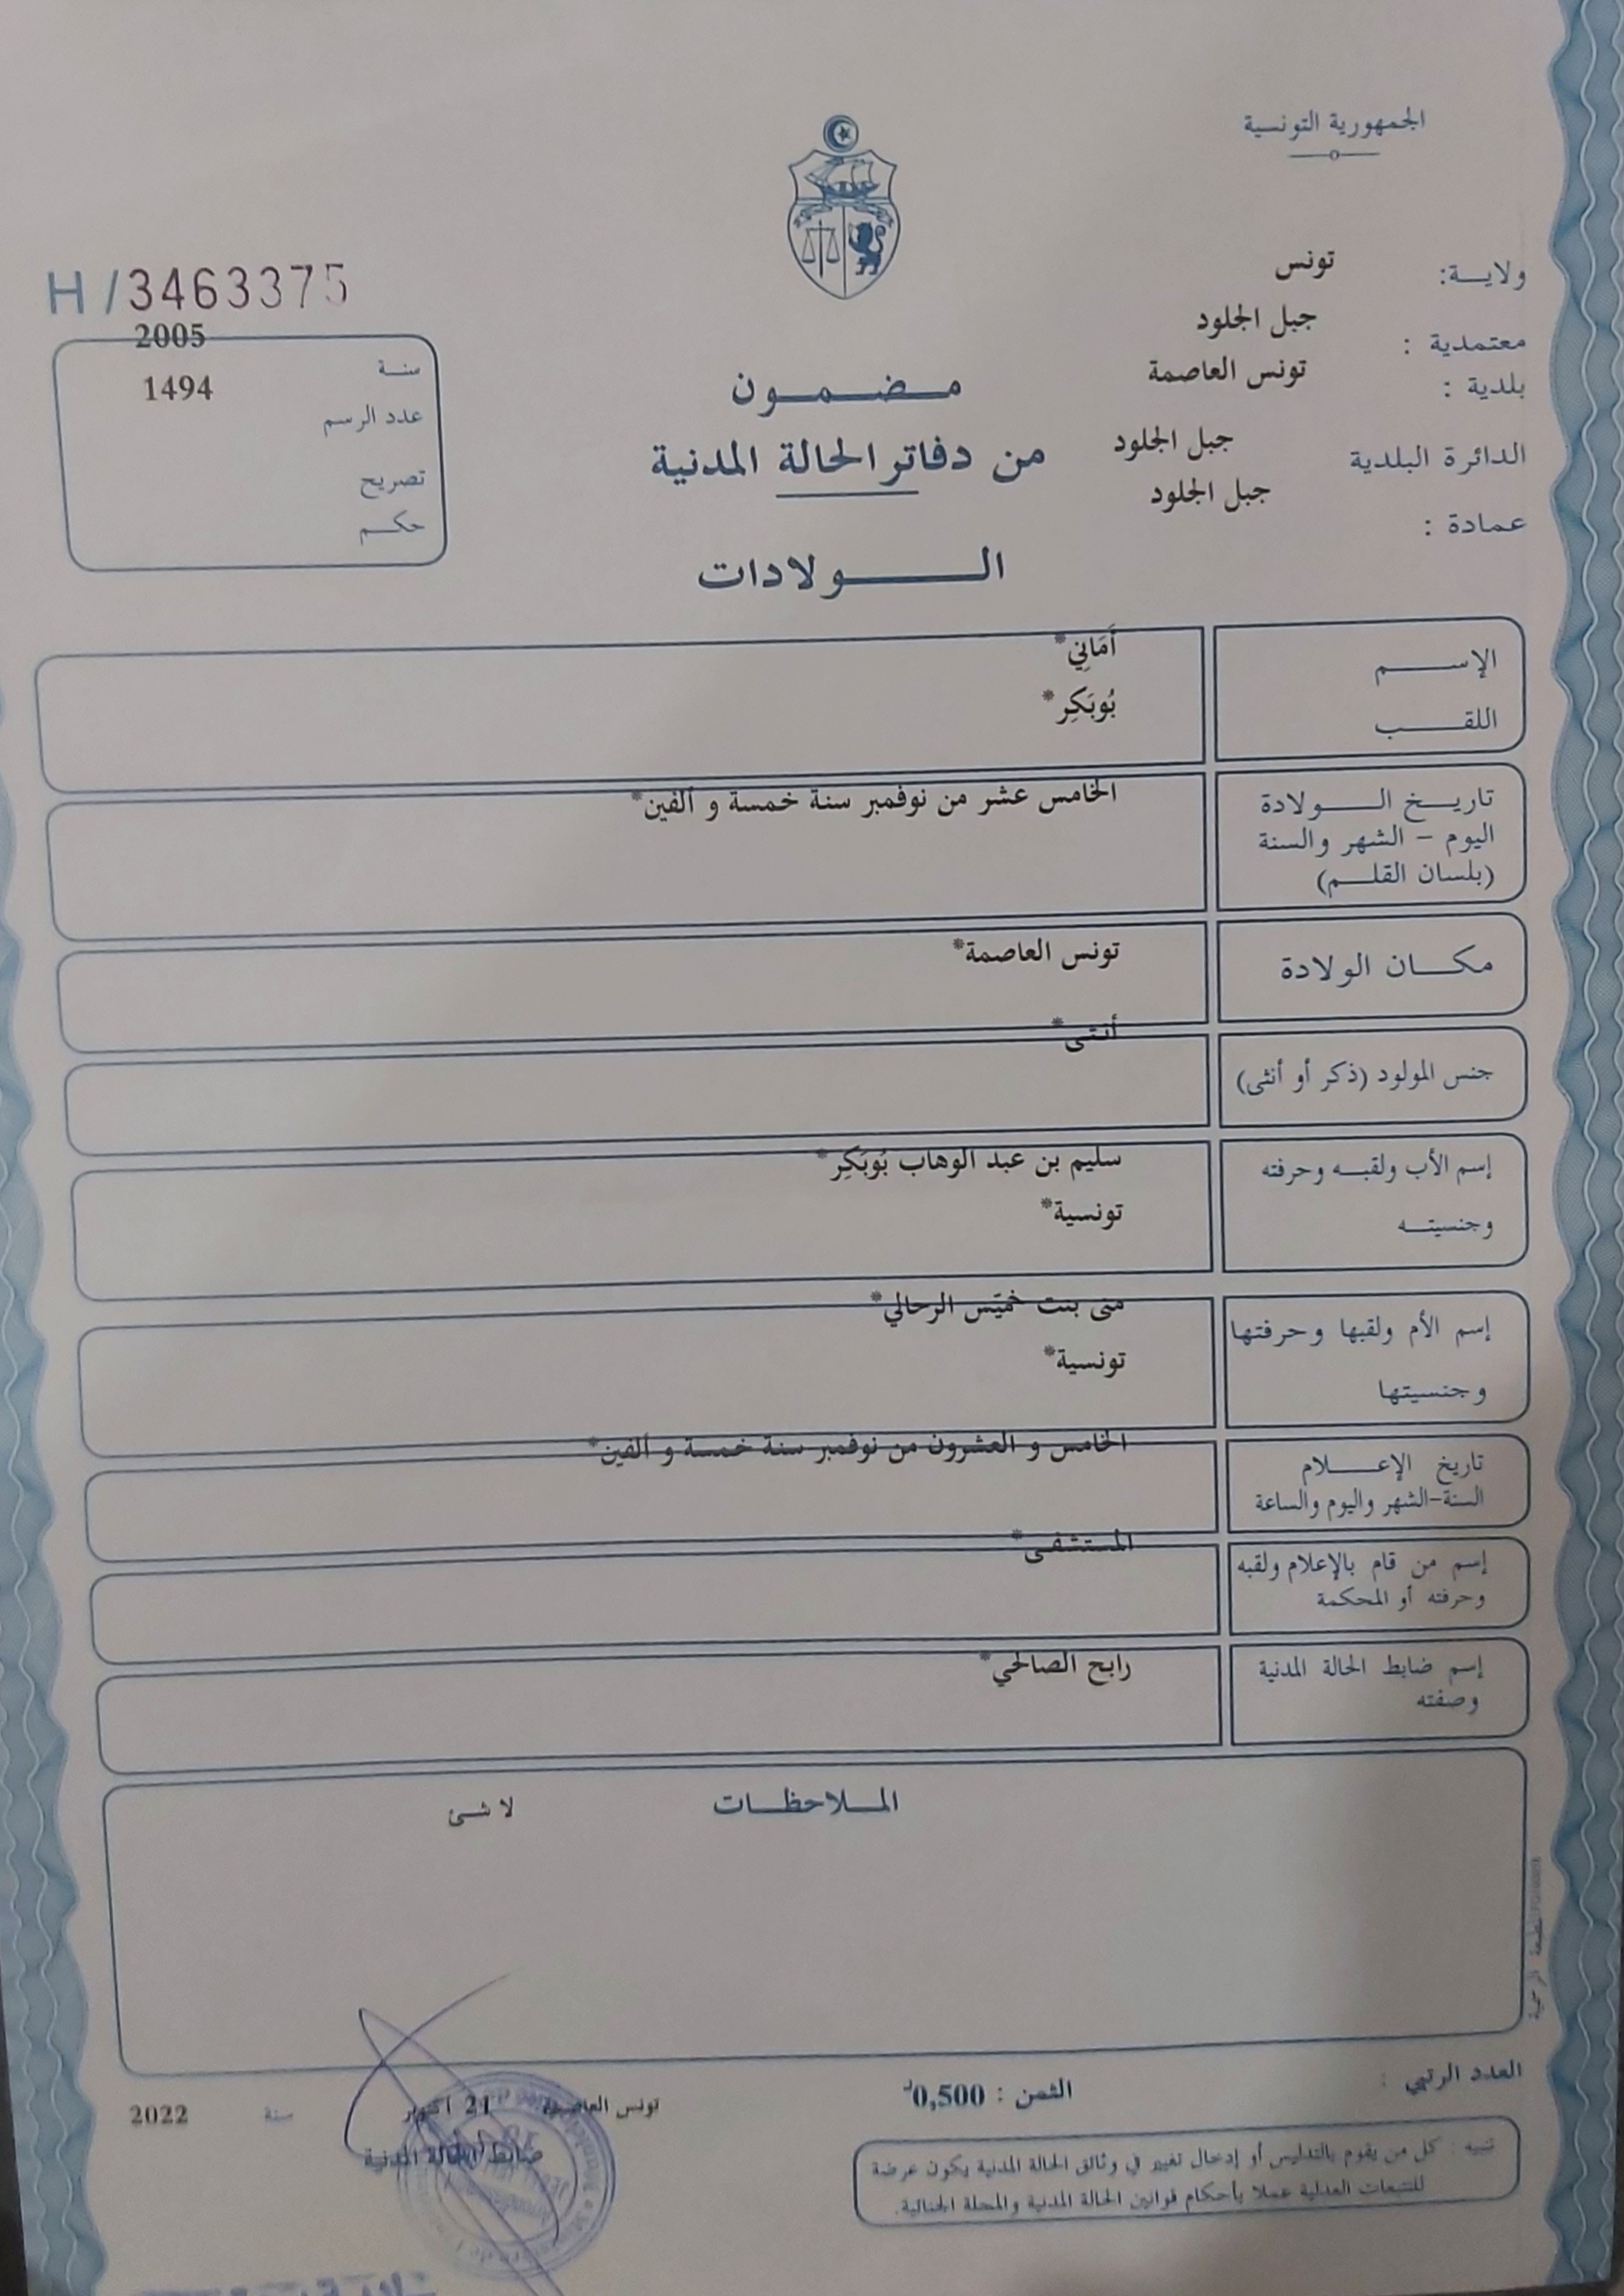 الجمهورية التونسية
ولايـة: تونس
معتمدية : جبل الجلود
بلدية : تونس العاصمة
الدائرة البلدية جبل الجلود
عمادة : جبل الجلود
H/3463375
سنة 2005
عدد الرسم 1494
تصريح
حكم
مضمون
من دفاتر الحالة المدنية
الولادات
الإسم أَمَانِي*
اللقب بُوبَكِر*
تاريخ الولادة الخامس عشر من نوفمبر سنة خمسة و ألفين*
اليوم - الشهر والسنة
(بلسان القلم)
مكان الولادة تونس العاصمة*
جنس المولود (ذكر أو أنثى) أنثى*
إسم الأب ولقبه وحرفته سليم بن عبد الوهاب بُوبَكِر*
وجنسيته تونسية*
إسم الأم ولقبها وحرفتها منى بنت خميّس الرحالي*
وجنسيتها تونسية*
تاريخ الإعلام الخامس و العشرون من نوفمبر سنة خمسة و ألفين*
السنة-الشهر واليوم والساعة
إسم من قام بالإعلام ولقبه المستشفى*
وحرفته أو المحكمة
إسم ضابط الحالة المدنية رابح الصالحي*
وصفته
الملاحظات لا شئ
المطبعة الرسمية
العدد الرتبي :
الثمن : 0,500د
تونس العاصمة 21 أكتوبر سنة 2022
ضابط الحالة المدنية
تنبيه : كل من يقوم بالتدليس أو إدخال تغيير في وثائق الحالة المدنية يكون عرضة
للتتبعات العدلية عملا بأحكام قوانين الحالة المدنية والمجلة الجنائية.